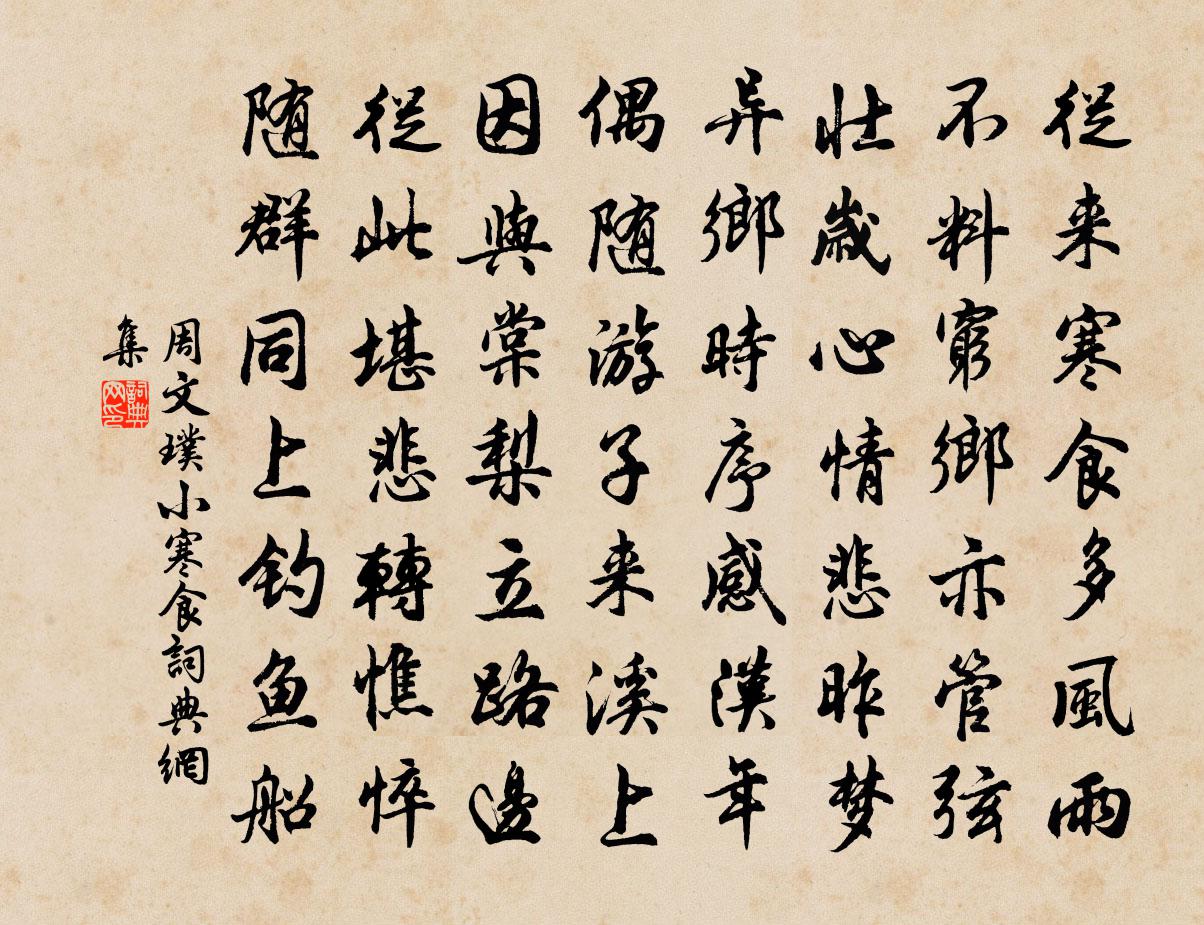 從来寒食多風雨
不料窮鄉亦管弦
壯歲心情悲昨梦
异鄉時序感漢年
偶随游子来溪上
因與棠梨立路邊
從此堪悲轉憔悴
随群同上钓鱼船
周文璞小寒食詞典網
集
詞典网印